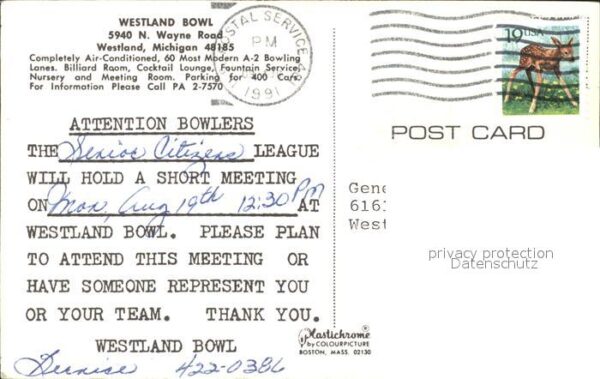 WESTLAND BOWL
5940 N. Wayne Road
Westland, Michigan 48185
Completely Air-Conditioned, 60 Most Modern A-2 Bowling
Lanes. Billiard Room, Cocktail Lounge, Fountain Service,
Nursery and Meeting Room. Parking for 400 Cars.
For Information Please Call PA 2-7570
POSTAL SERVICE
PM
1991
19 USA
POST CARD
ATTENTION BOWLERS
THE Senior Citizens LEAGUE
WILL HOLD A SHORT MEETING
ON Mon, Aug 19th 12:30 PM AT
WESTLAND BOWL. PLEASE PLAN
TO ATTEND THIS MEETING OR
HAVE SOMEONE REPRESENT YOU
OR YOUR TEAM. THANK YOU.
WESTLAND BOWL
Bernise 422-0386
Gene
6161
West
privacy protection
Datenschutz
Plastichrome
by COLOURPICTURE
BOSTON, MASS. 02130